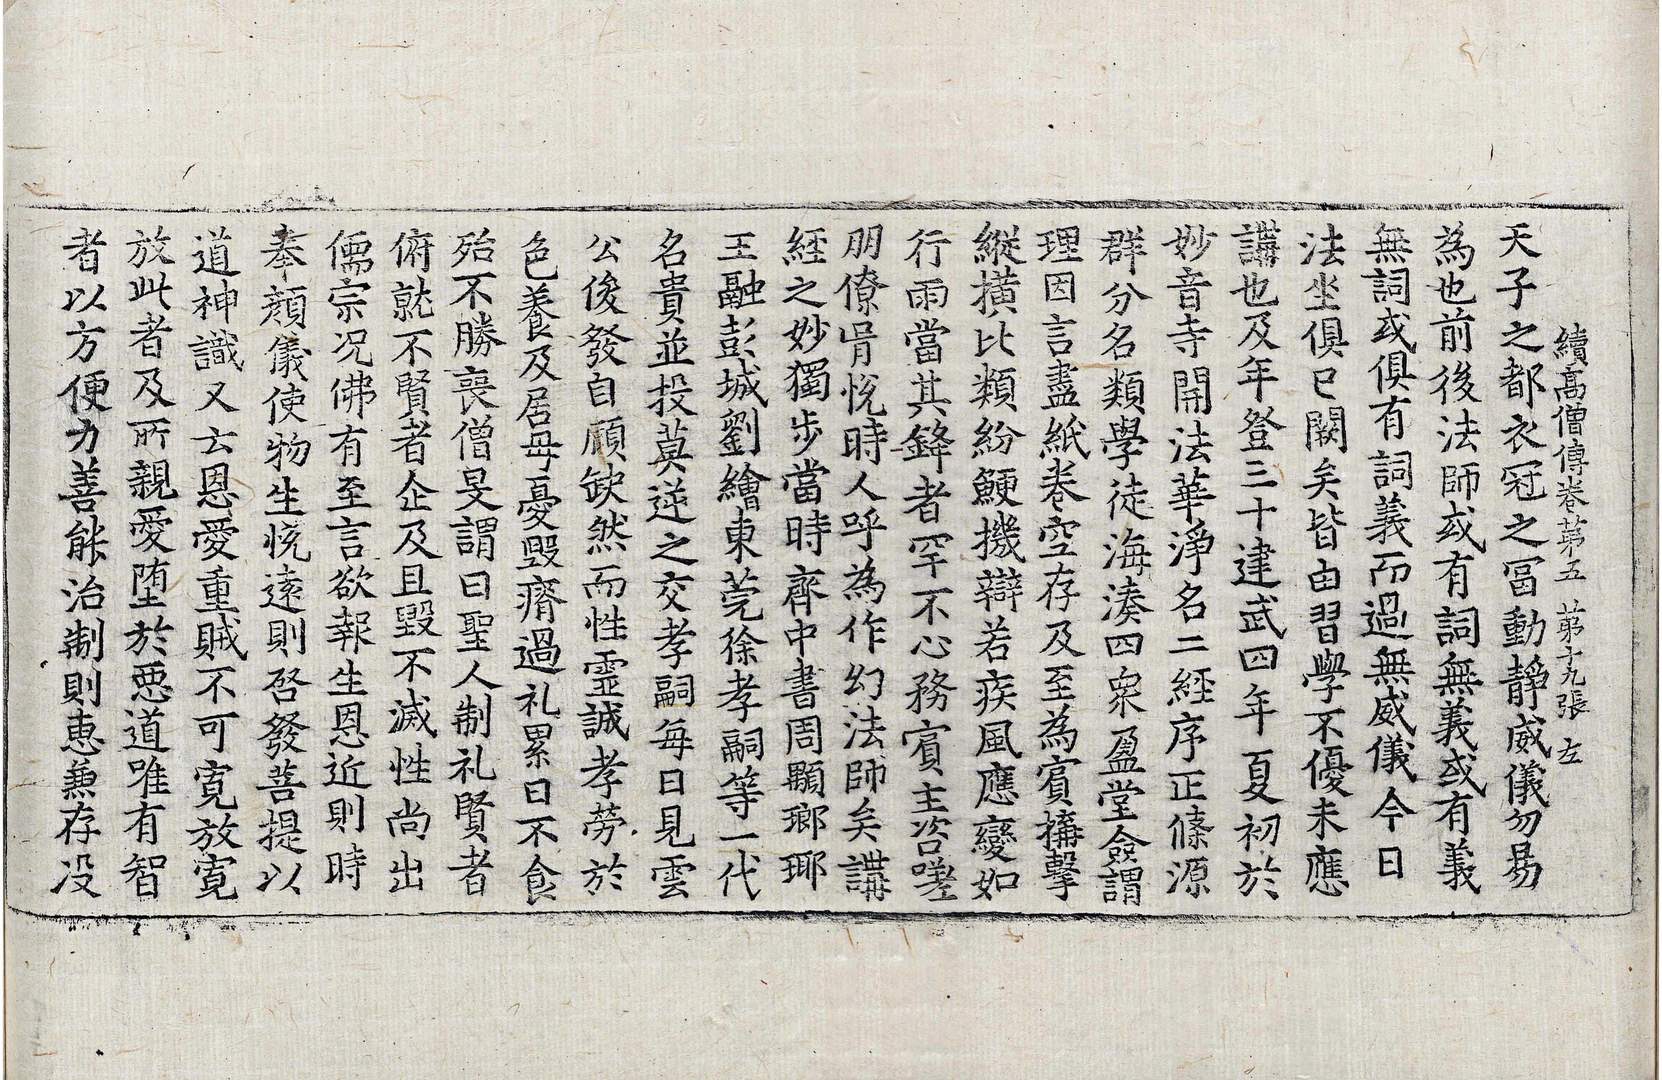 續高僧傳卷苐五　苐十九張　左
天子之都衣冠之冨動靜威儀勿易
為也前後法師或有詞無義或有義
無詞或俱有詞義而過無威儀今日
法坐俱已闕矣皆由習學不優未應
講也及年登三十建武四年夏初於
妙音寺開法華淨名二經序正條源
群分名類學徒海湊四衆盈堂僉謂
理因言盡紙卷空存及至為賓搆擊
縱撗比類紛鯁機辯若疾風應變如
行雨當其鋒者罕不心務賓主咨嗟
朋僚胥恱時人呼為作幻法師矣講
經之妙獨步當時齊中書周顒瑯瑘
王融彭城劉繪東莞徐孝嗣等一代
名貴並投莫逆之交孝嗣每日見雲
公後發自顧缺然而性靈誠孝勞於
色養及居母憂毀瘠過礼累日不食
殆不勝喪僧旻謂曰聖人制礼賢者
俯就不賢者企及且毀不滅性尚出
儒宗况佛有至言欲報生恩近則時
奉顏儀使物生恱遠則啓發菩提以
道神識又云恩愛重賊不可寛放寛
放此者及所親愛堕於惡道唯有智
者以方便力善能治制則恵兼存没